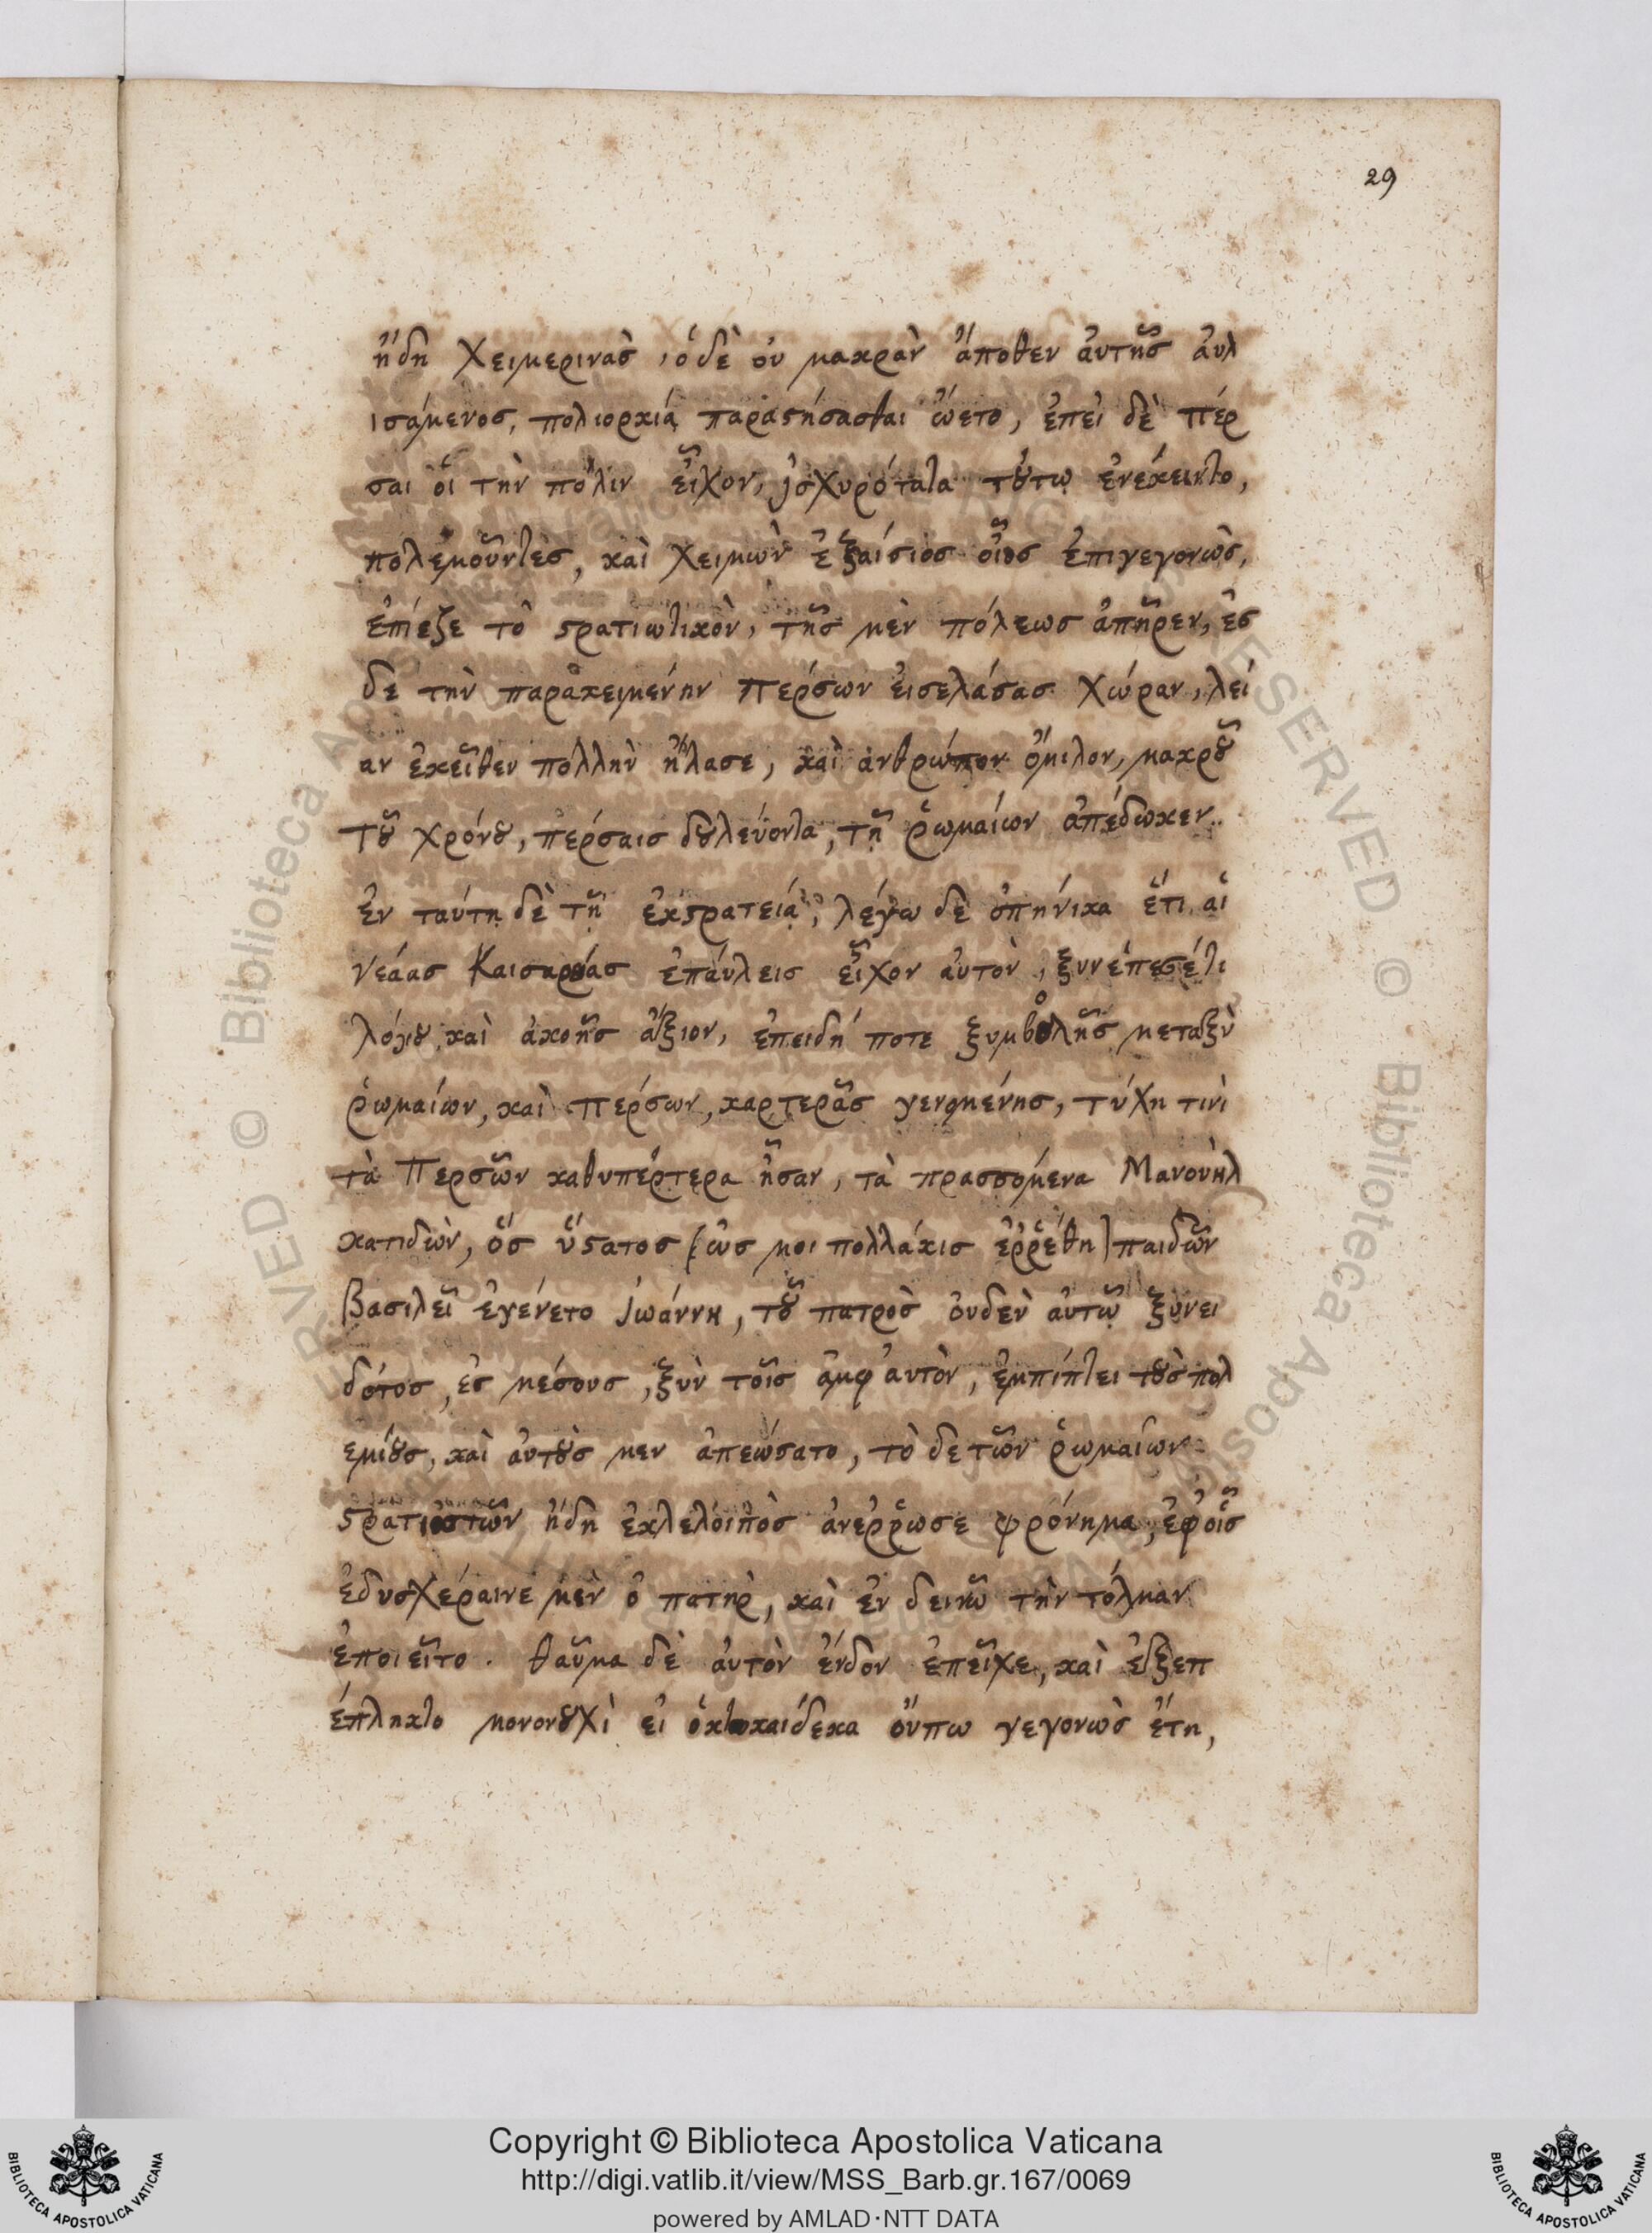 29
ἤδη χειμερινὰς, ὁ δὲ ὀυ μακρὰν ἄποθεν ἀυτῆς ἀυλ
ισάμενος, πολιορκίᾳ παραστήσασθαι ᾤετο, ἐπεὶ δὲ πέρ
σαι οἱ τὴν πόλιν εἶχον, ἰσχυρότατα τούτῳ ἐνέκειντο,
πολεμοῦντες, καὶ χειμὼν ἐξαίσιος οἷος ἐπιγεγονὼς,
ἐπίεζε τὸ στρατιωτικὸν, τῆς μὲν πόλεως ἀπῆρεν, ἐς
δὲ τὴν παρακειμένην περσων ἐισελάσας χώραν, λεί
αν ἐκεῖθεν πολλὴν ἤλασε, καὶ ἀνθρώπον ὅμιλον, μακροῦ
τοῦ χρόνου, πέρσαις δουλεύοντα, τῇ ῥωμαίων ἀπέδωκεν.
ἐν ταύτῃ δὲ τῇ ἐκστρατείᾳ, λέγω δὲ ὁπηνίκα ἔτι αἱ
νεάας Καισαρέας ἐπάυλεις εἶχον ἀυτὸν, ξυνέπεσέ τι
λόγου καὶ ἀκοῆς ἄξιον, ἐπειδή ποτε ξυμβολῆς μεταξὺ
ῥωμαίων, καὶ περσων, καρτερᾶς γενομένης, τύχη τινὶ
τὰ Περσῶν καθυπέρτερα ἦσαν, τὰ πρασσομένα Μανουὴλ
κατιδὼν, ὅς ὕστατος (ὡς μοι πολλάκις ἐῤῥέθη) παιδῶν
βασιλεῖ ἐγένετο Ἰωάννη, τοῦ πατρὸς ὀυδὲν ἀυτῷ ξυνει
δότος, ἐς μέσους, ξὺν τοῖς ἀμφ' ἀυτὸν, ἐμπίπτει τοὺς πολ
εμίους, καὶ ἀυτοὺς μεν ἀπεώσατο, τὸ δε τῶν ῥωμαίων
στρατιωτῶν ἤδη ἐκλελοιπὸς ἀνεῤῥωσε φρόνημα, ἐφ' οἷς
ἐδυσχέραινε μὲν ὁ πατὴρ, καὶ ἐν δεινῷ τὴν τόλμαν
ἐποιεῖτο. θαῦμα δὲ ἀυτὸν ἔνδον ἐπεῖχε, καὶ ἐξεπ
έπληκτο μονονουχὶ εἰ ὀκτωκαίδεκα ὄυπω γεγονὼς ἔτη,
Copyright © Biblioteca Apostolica Vaticana
http://digi.vatlib.it/view/MSS_Barb.gr.167/0069
powered by AMLAD·NTT DATA
BIBLIOTECA APOSTOLICA VATICANA
BIBLIOTECA APOSTOLICA VATICANA